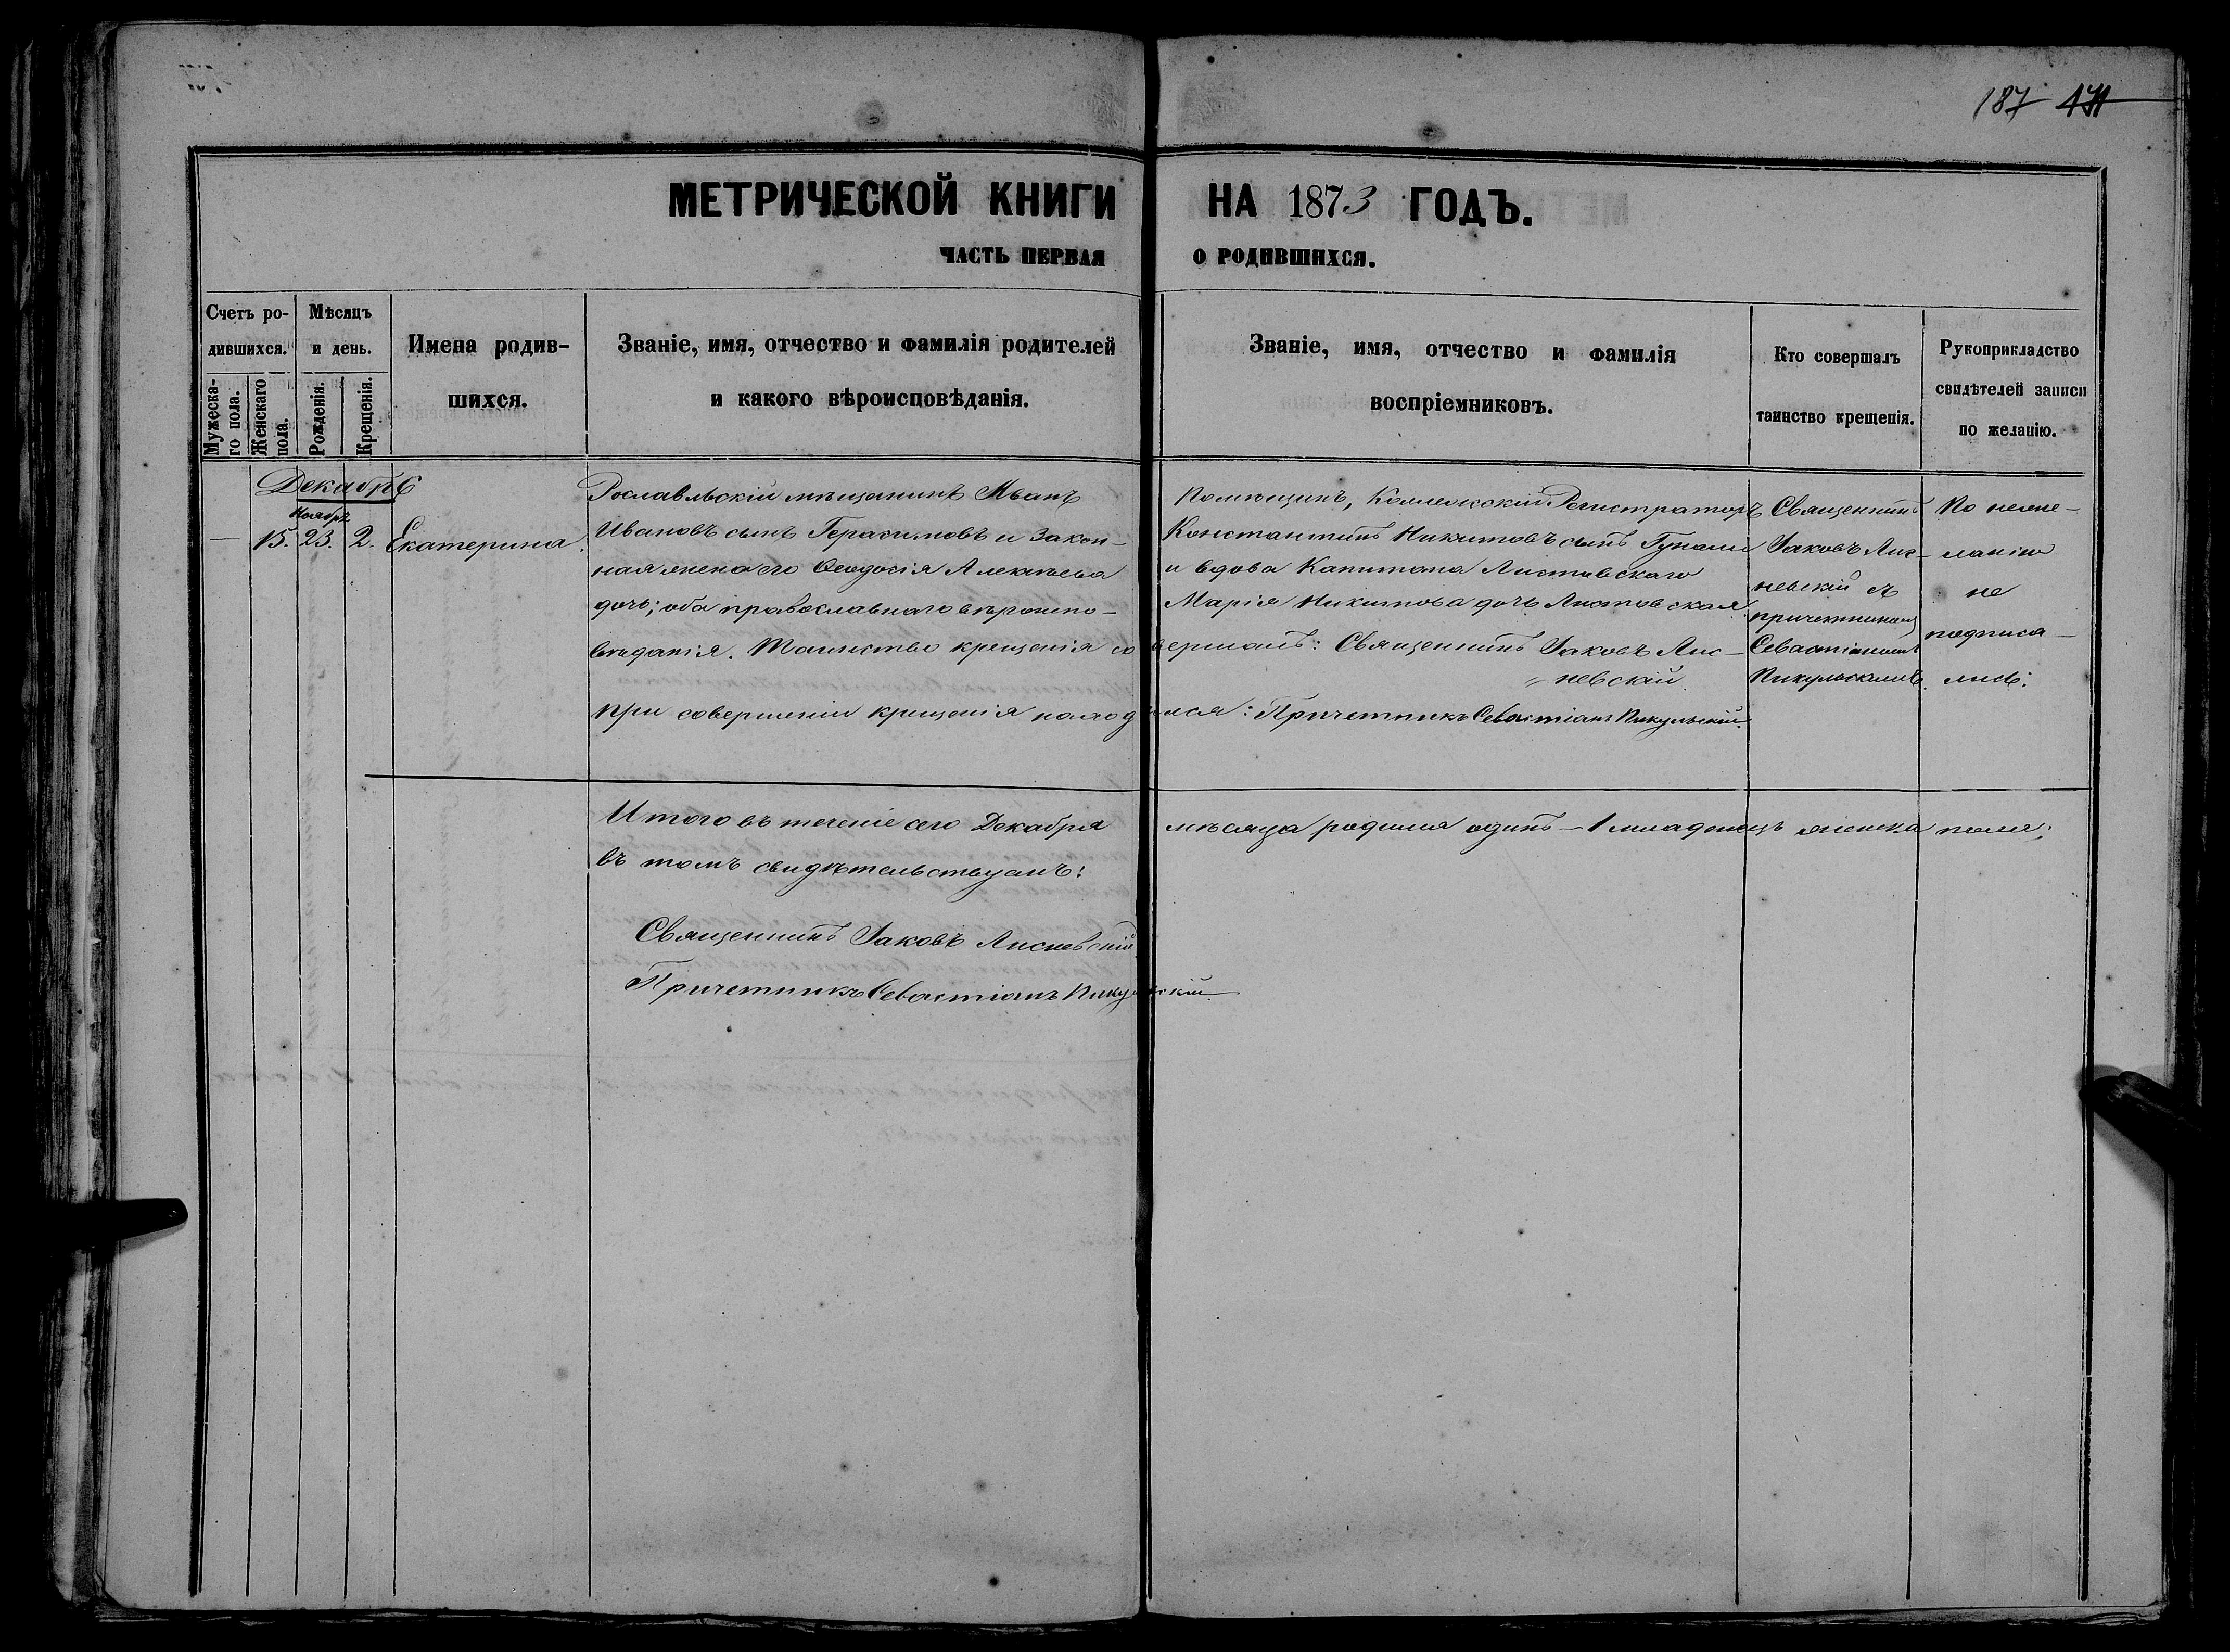 187 471
МЕТРИЧЕСКОЙ КНИГИ НА 1873 ГОДЪ.
ЧАСТЬ ПЕРВАЯ О РОДИВШИХСЯ.
Счетъ ро-
дившихся.
Мужеска-
го пола.
Женскаго
пола.
Мѣсяцъ
и день.
Рожденія.
Крещенія.
Имена родив-
шихся.
Званіе, имя, отчество и фамилія родителей
и какого вѣроисповѣданія.
Званіе, имя, отчество и фамилія
воспріемниковъ.
Кто совершалъ
таинство крещенія.
Рукоприкладство
свидѣтелей записи
по желанію.
Декабрь
Ноября
— 15. 23. 2. Екатерина.
Рославльскій мѣщанинъ Иванъ
Ивановъ сынъ Герасимовъ и закон-
ная жена его Ѳеодосія Алексѣева
дочь; оба православнаго вѣроиспо-
вѣданія. Таинство крещенія совершалъ: Священникъ Іаковъ Лис-
невскій
При совершеніи крещенія находился: Причетникъ Севастіанъ Пикульскій.
Помѣщикъ, Коллежскій Регистраторъ
Константинъ Никитовъ сынъ
и вдова Капитана Листовскаго
Марія Никитова дочь Листовская.
Священникъ
Іаковъ Лис-
невскій съ
причетникомъ
Севастіаномъ
Пикульскимъ.
По неже-
ланію
не
подписа-
лись:
Итого въ теченіе сего Декабря мѣсяца родился одинъ — 1 младенецъ женска пола;
въ томъ свидѣтельствуемъ:
Священникъ Іаковъ Лисневскій
Причетникъ Севастіанъ Пикульскій.